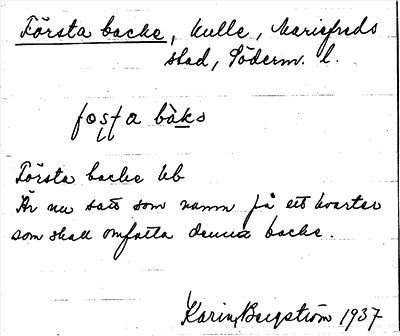 Första backe, kulle, Mariefreds
stad, Söderm. l.
fosta bàks
Första backe kb
Är nu satt som namn på ett kvarter
som skall omfatta denna backe.
Karin Bergström 1937